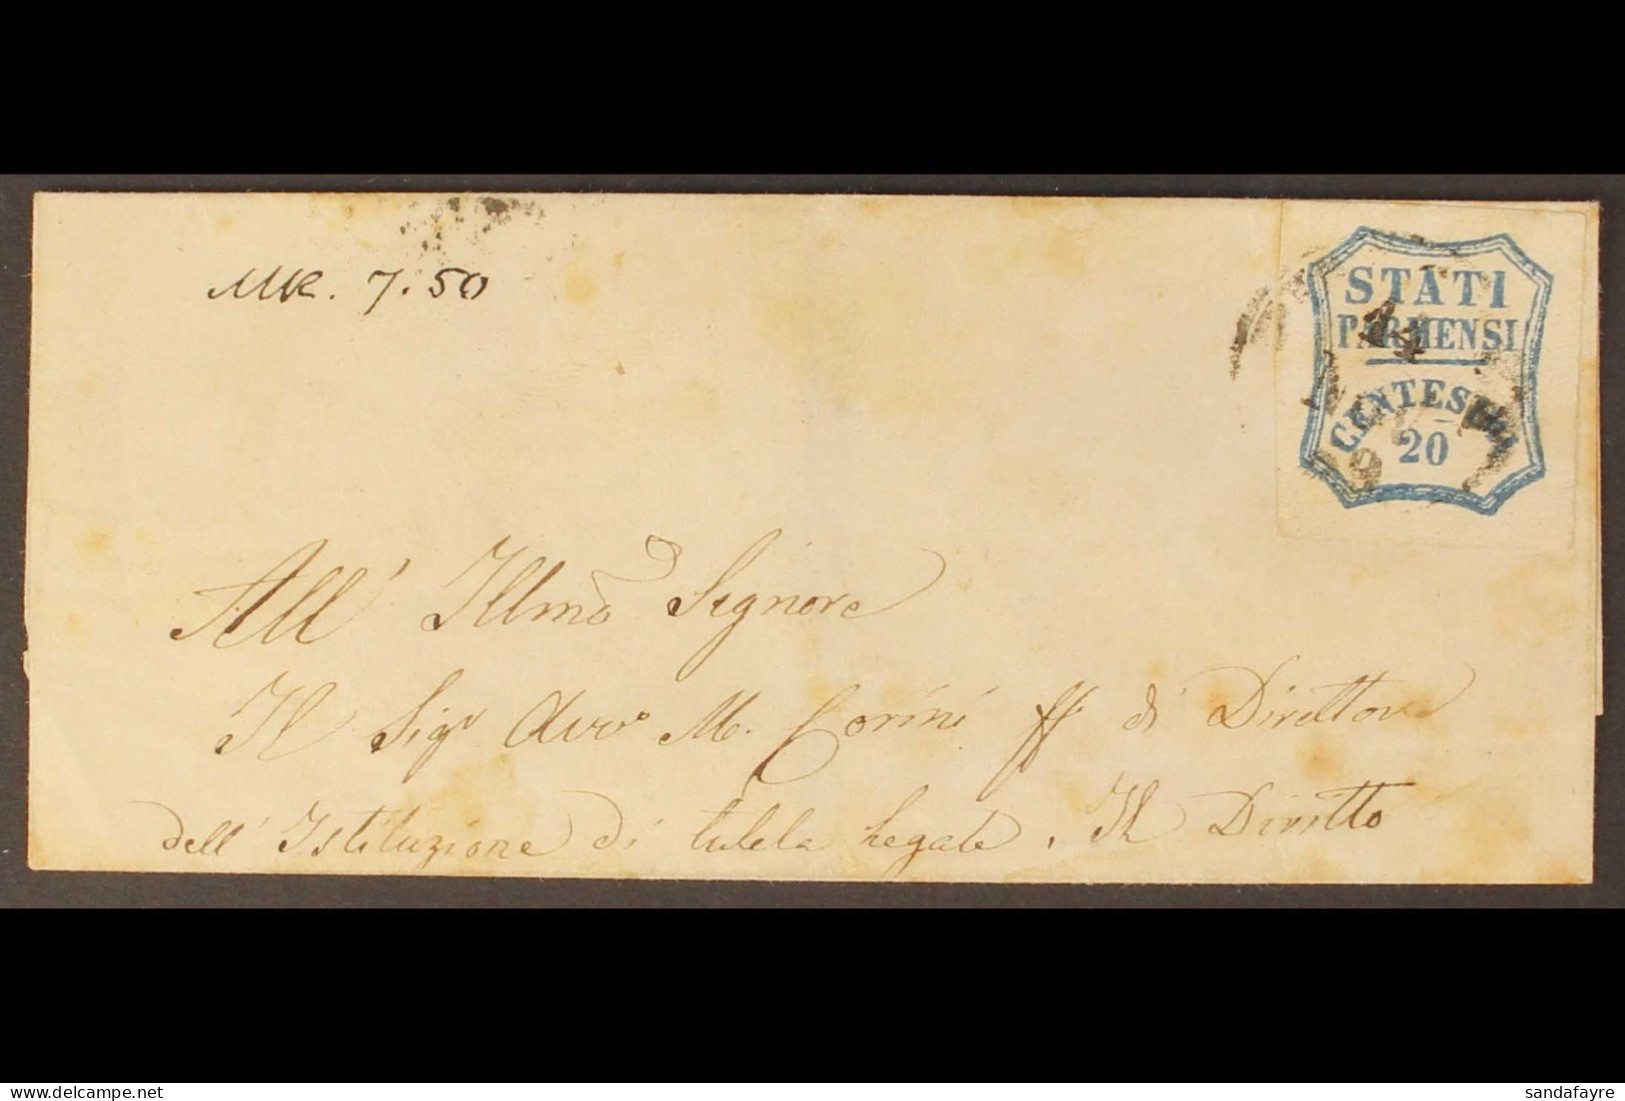 MK. 7.50
STATI
PARMENSI
CENTESIMI
20
14
All' Illmo Signore
Il Sigr Avvo M. Corini ff di Direttore
dell' Istituzione di tutela Legale. Il Diritto
sandafayre